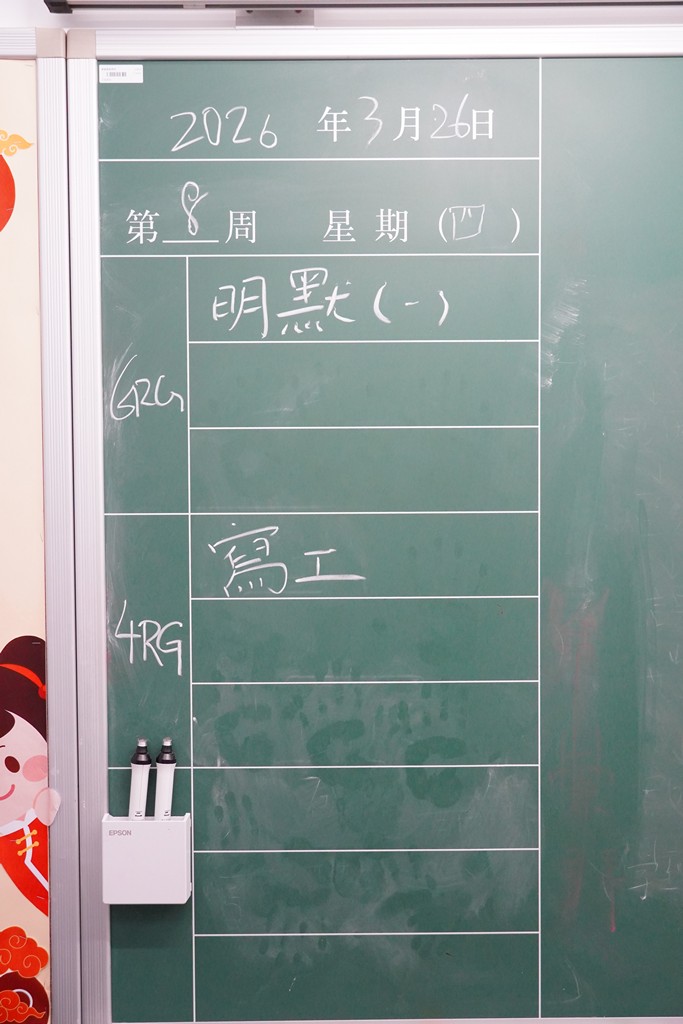 2026年3月26日
第8周 星期(四)
6RG
明默(一)
4RG
寫工
EPSON